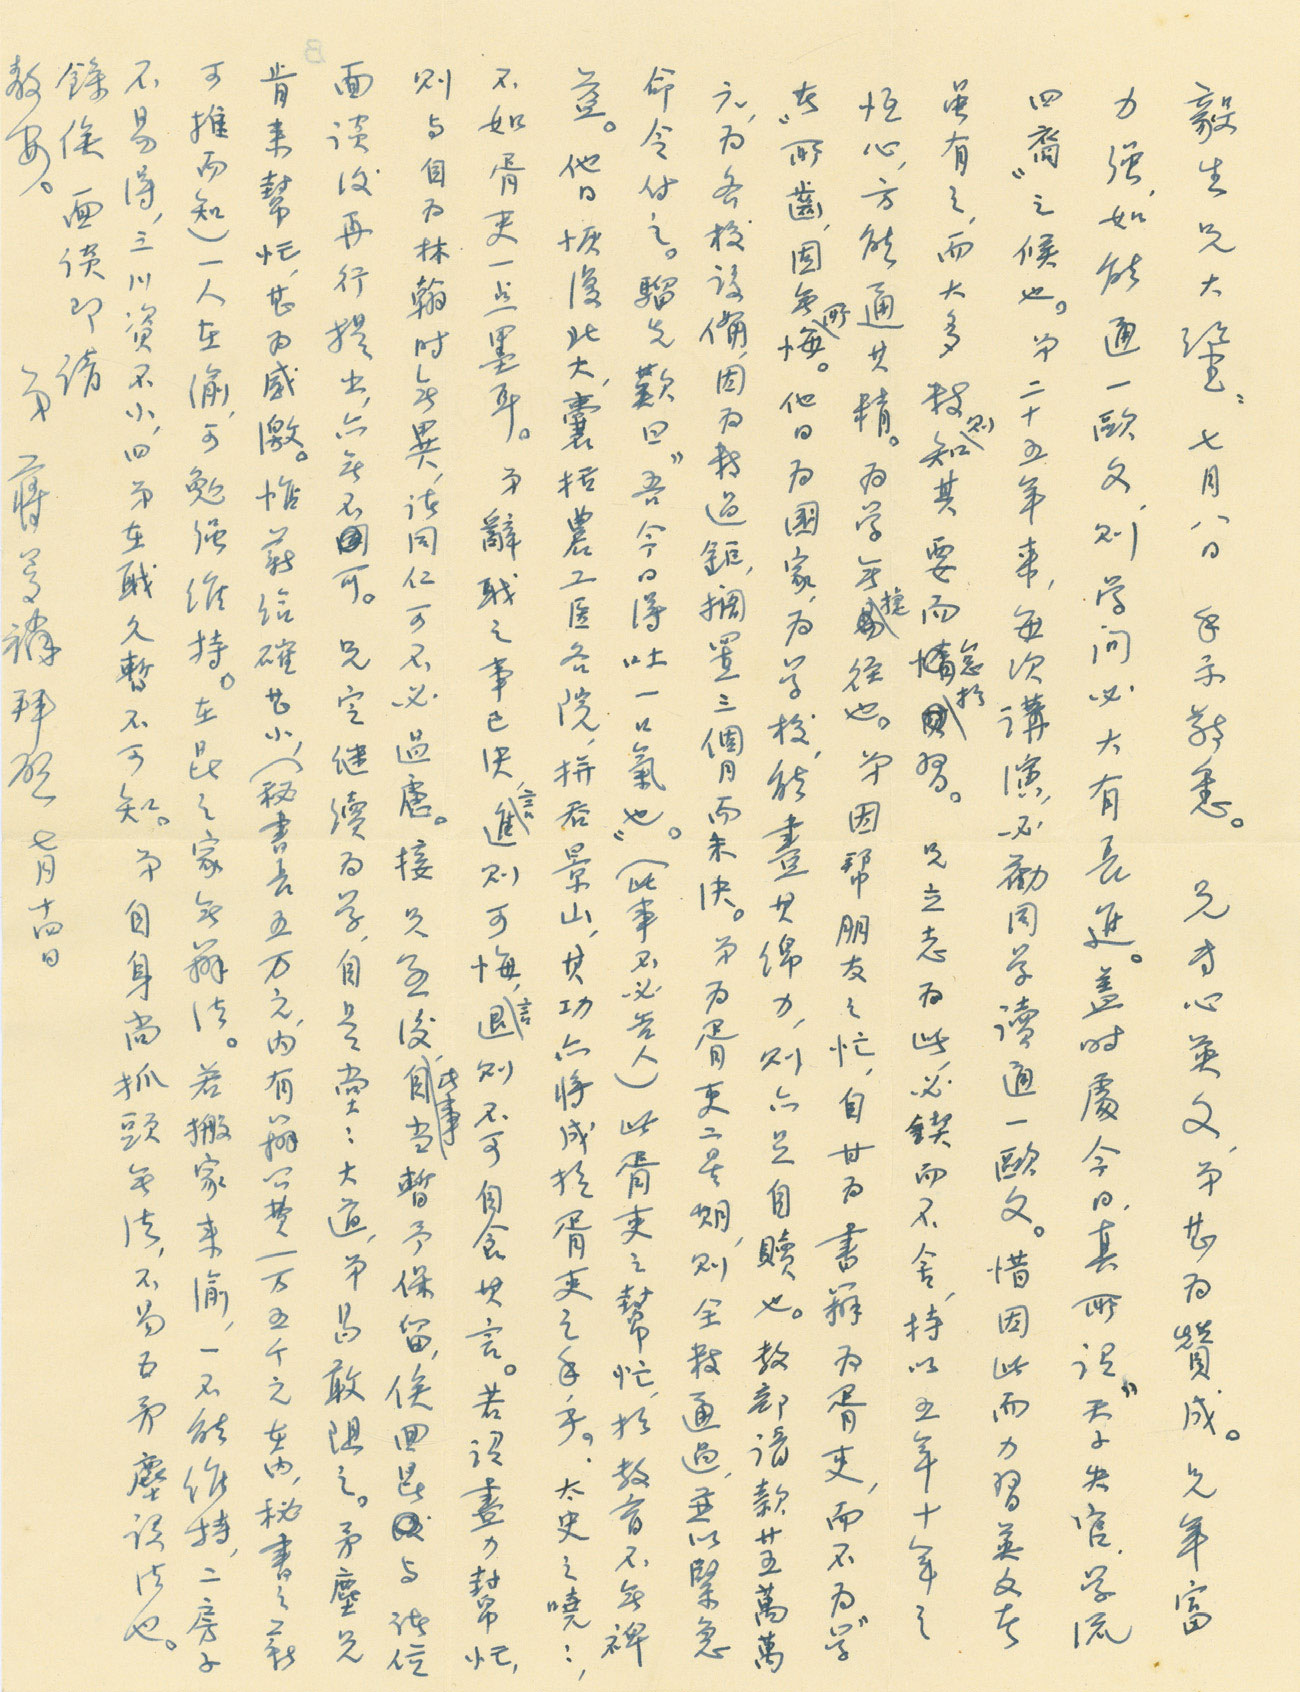 毅生兄大鑒：七月八日　手示敬悉。　兄專心英文，弟甚為贊成。兄年富
力強，如能通一歐文，則學問必大有長進。蓋時處今日，真所謂“天子失官，學流
四裔”之候也。弟二十五年來，每次講演，必勸同學讀通一歐文。惜因此而力習英文者
雖有之，而大多數則知其要而惰怠於習。　兄立志為此，必鍥而不舍，持以五年十年之
恒心，方能通其精。為學無捷徑也。弟因幫朋友之忙，自甘為書辦為胥吏，而不為“學
者”所齒，固無所悔。他日為國家，為學校，能盡其綿力，則亦足自贖也。教部語款廿五萬萬
元，為各校設備，因為數過鉅，擱置三個月而未決。弟為胥吏二星期，則全數通過，並以緊急
命令付之。騮先歎曰“吾今日得吐一口氣也。”（此事不必告人）此胥吏之幫忙，於教育不無裨
益。他日恢復北大，囊括農工醫各院，拼吞景山，其功亦將成於胥吏之手乎。太史之嘵：，
不如胥吏一點墨耳。弟辭職之事已決，進言則可悔，退言則不可自食其言。若謂盡力幫忙，
則与自為林翰時無異，諸同仁可不必過慮。接兄函後，此事自當暫予保留，俟回昆与諸位
面談後再行提出，亦無不可。　兄定繼續為學，自是堂：大道，弟曷敢阻之。矛塵兄
肯來幫忙，甚為感激。惟薪給確甚小，（秘書長五万元，內有辦公費一万五千元在內，秘書之薪
可推而知）一人在渝，可勉強維持。在昆之家無辦法。若搬家來渝，一不能維持，二房子
不易得，三川資不小，四弟在職久暫不可知。弟自身尚抓頭無法，不易為矛塵設法也。
餘俟　面談即請
教安。
弟　蔣夢麟拜啟　七月十四日